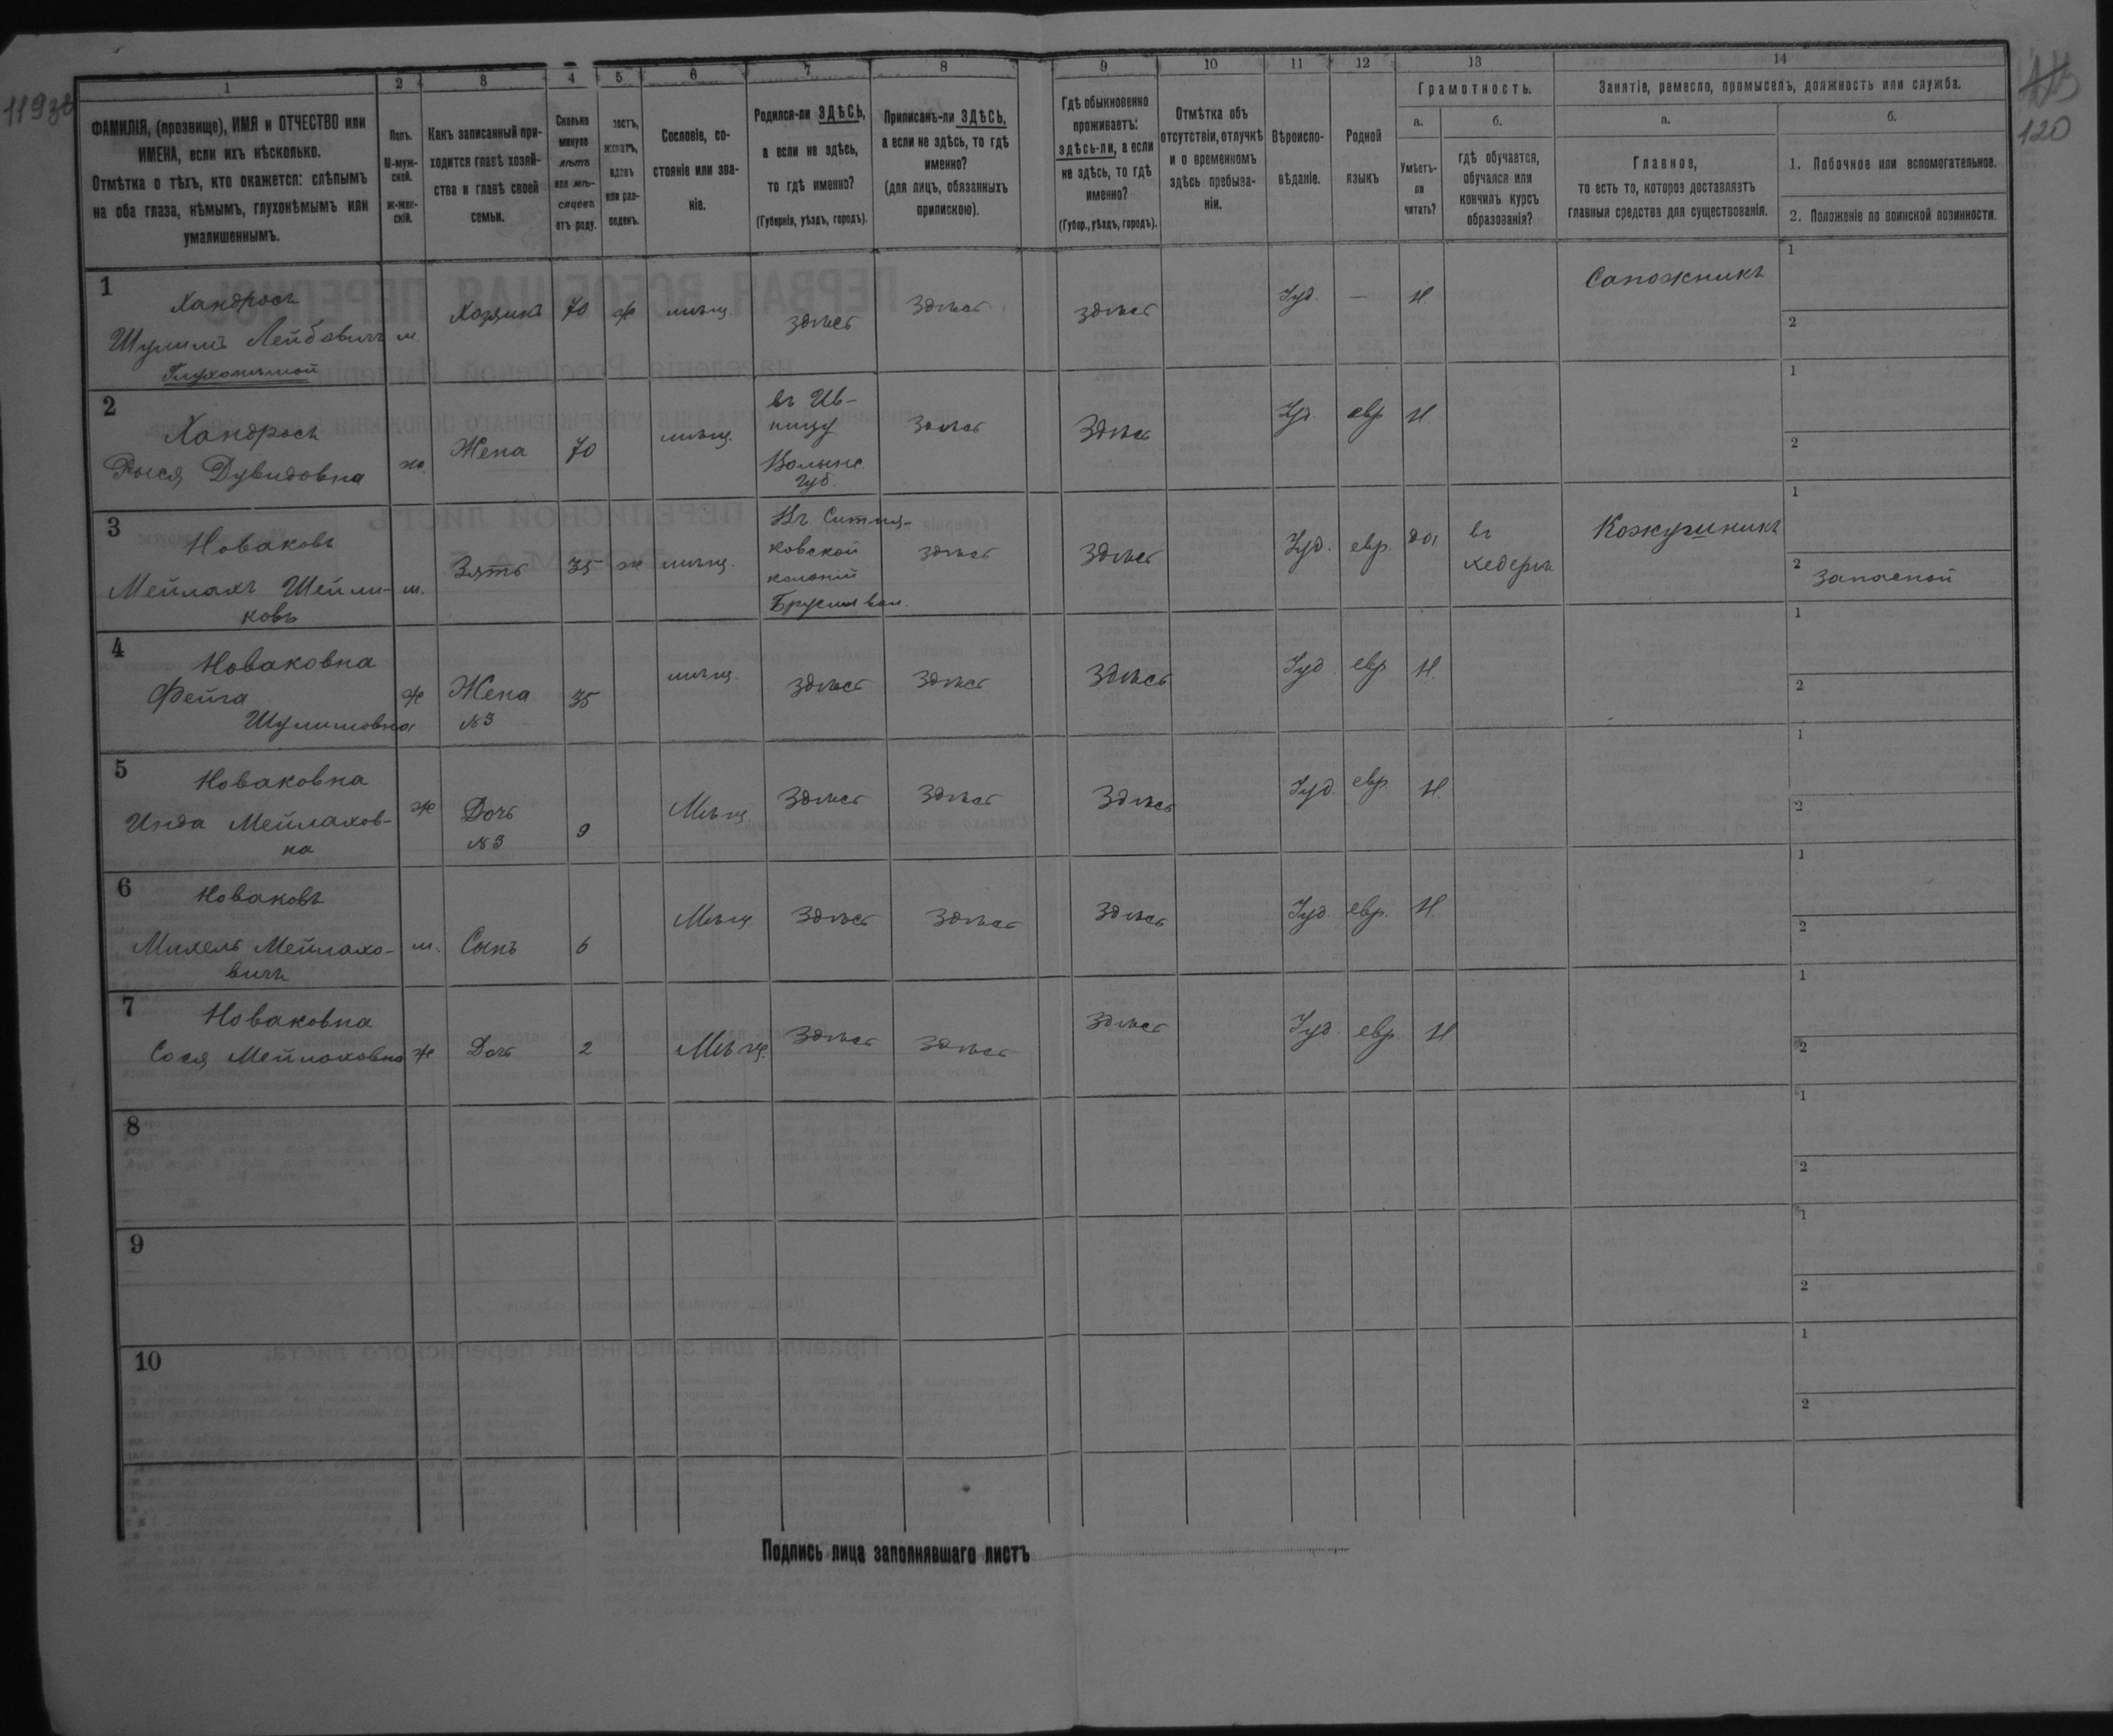 119
120
1
2
3
4
5
6
7
8
9
10
11
12
13
14
ФАМИЛІЯ, (прозвище), ИМЯ и ОТЧЕСТВО или
ИМЕНА, если ихъ нѣсколько.
Отмѣтка о тѣхъ, кто окажется: слѣпымъ
на оба глаза, нѣмымъ, глухонѣмымъ или
умалишеннымъ.
Полъ.
М-муж-
ской.
ж-жен-
скій.
Какъ записанный при-
ходится главѣ хозяй-
ства и главѣ своей
семьи.
Сколько
минуло
лѣтъ
или мѣ-
сяцевъ
отъ роду.
лостъ,
женатъ,
вдовъ
или раз-
веденъ.
Сословіе, со-
стояніе или зва-
ніе.
Родился-ли ЗДѢСЬ,
а если не здѣсь,
то гдѣ именно?
(Губернія, уѣздъ, городъ).
Приписанъ-ли ЗДѢСЬ,
а если не здѣсь, то гдѣ
именно?
(для лицъ, обязанныхъ
припискою).
Гдѣ обыкновенно
проживаетъ:
здѣсь-ли, а если
не здѣсь, то гдѣ
именно?
(Губер., уѣздъ, городъ).
Отмѣтка объ
отсутствіи, отлучкѣ
и о временномъ
здѣсь пребыва-
ніи.
Вѣроиспо-
вѣданіе.
Родной
языкъ
Грамотность.
а.
Умѣетъ-
ли
читать?
б.
гдѣ обучается,
обучался или
кончилъ курсъ
образованія?
Занятіе, ремесло, промыселъ, должность или служба.
а.
Главное,
то есть то, которое доставляетъ
главныя средства для существованія.
б.
1. Побочное или вспомогательное.
2. Положеніе по воинской повинности.
1
Хандросъ
Шулимъ Лейбовичъ
Глухонѣмой
м
Хозяинъ
70
ж
мѣщ.
здѣсь
здѣсь
здѣсь
Іуд.
—
Н.
Сапожникъ
1
2
2
Хандросъ
Рыся Дувидовна
ж.
Жена
70
мѣщ.
въ Ив-
ницу
Волынс.
Губ.
Здѣсь
Здѣсь
Іуд.
евр
Н.
1
2
3
Новаковъ
Мейлахъ Шейли-
ковъ
м.
Зять
35
ж
мѣщ.
Въ Ситня-
ковской
колоніи
Брусил вол.
здѣсь
здѣсь
Іуд.
евр.
да
въ
хедерѣ
Кожушникъ
1
2
запасной
4
Новаковна
Фейга
Шулимовна
ж
Жена
№ 3
35
мѣщ.
здѣсь
здѣсь
здѣсь
Іуд.
евр
Н.
1
2
5
Новаковна
Инда Мейлахов-
на
ж
Дочь
№ 3
9
Мѣщ.
здѣсь
здѣсь
здѣсь
Іуд.
евр.
Н.
1
2
6
Новаковъ
Михель Мейлахо-
вичъ
м.
Сынъ
6
Мѣщ.
здѣсь
здѣсь
здѣсь
Іуд.
евр.
Н.
1
2
7
Новаковна
Сося Мейлаховна
ж
Дочь
2
Мѣщ.
здѣсь
здѣсь
здѣсь
Іуд.
евр.
Н
1
2
8
1
2
9
1
2
10
1
2
Подпись лица заполнявшаго листъ